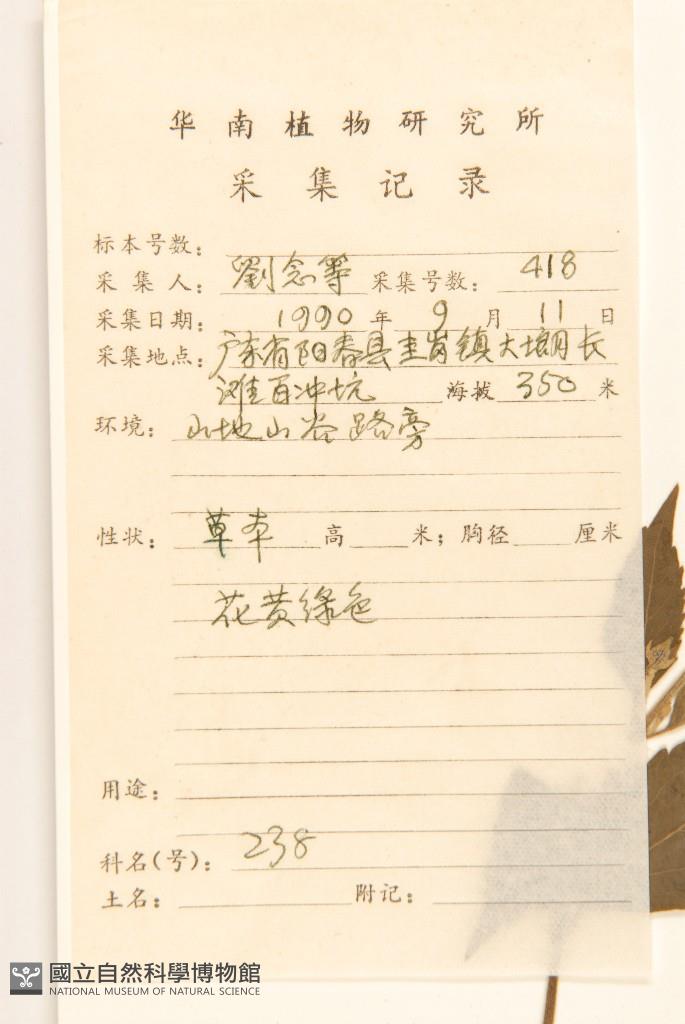 华南植物研究所
采集记录
标本号数：
采集人：劉念等 采集号数：418
采集日期：1990年9月11日
采集地点：广东省阳春县圭岗镇大塱朋长
滩百冲坑 海拔350米
环境：山地山谷路旁
性状：草本 高 米；胸径 厘米
花黄绿色
用途：
科名(号)：238
土名： 附记：
國立自然科學博物館
NATIONAL MUSEUM OF NATURAL SCIENCE